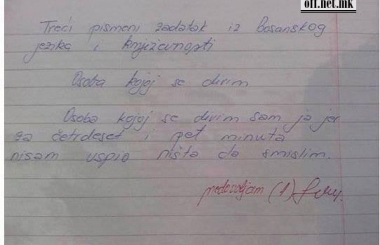 off.net.mk
Treći pismeni zadatak iz bosanskog
jezika i književnosti
Osoba kojoj se divim
Osoba kojoj se divim sam ja jer
za četrdeset i pet minuta
nisam uspio ništa da smislim.
nedovoljan (1)